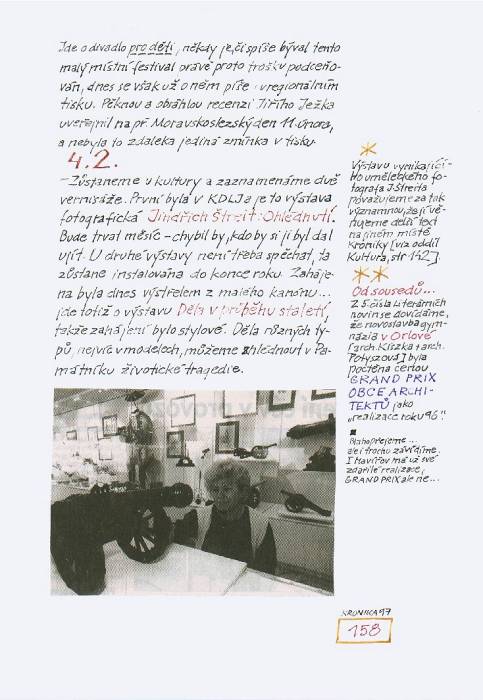 Jde o divadlo pro děti, někdy je, či spíše býval tento
malý místní festival právě proto trošku podceňo-
ván, dnes se však už o něm píše i v regionálním
tisku. Pěknou a obsáhlou recenzi Jiřího Ježka
uveřejnil na př. Moravskoslezský den 11. února,
a nebyla to zdaleka jediná zmínka v tisku
4.2.
– Zůstaneme u kultury a zaznamenáme dvě
vernisáže. První byla v KDLJ a je to výstava
fotografická Jindřich Štreit: Ohlédnutí.
Bude trvat měsíc – chybil by, kdo by si ji byl dal
ujít. U druhé výstavy není třeba spěchat, ta
zůstane instalována do konce roku. Zaháje-
na byla dnes výstřelem z malého kanónu...
jde totiž o výstavu Děla v průběhu staletí,
takže zahájení bylo stylové. Děla různých ty-
pů, nejvíc v modelech, můžeme zhlédnout v Pa-
mátníku životické tragedie.
Výstavu vynikající-
ho uměleckého fo-
tografa J. Štreita
považujeme za tak
významnou, že jí vě-
nujeme delší text
na jiném místě
Kroniky [viz oddíl
Kultura, str. 142].
Od sousedů...
Z 5. čísla Literárních
novin se dovídáme,
že novostavba gym-
názia v Orlové
[arch. Klézka + arch.
Potyszová] byla
poctěna cenou
GRAND PRIX
OBCE ARCHI-
TEKTŮ jako
„realizace roku 96."
Blahopřejeme...
ale i trochu závidíme.
I Havířov má už své
zdařilé realizace,
GRAND PRIX ale ne...
KRONIKA 97
158